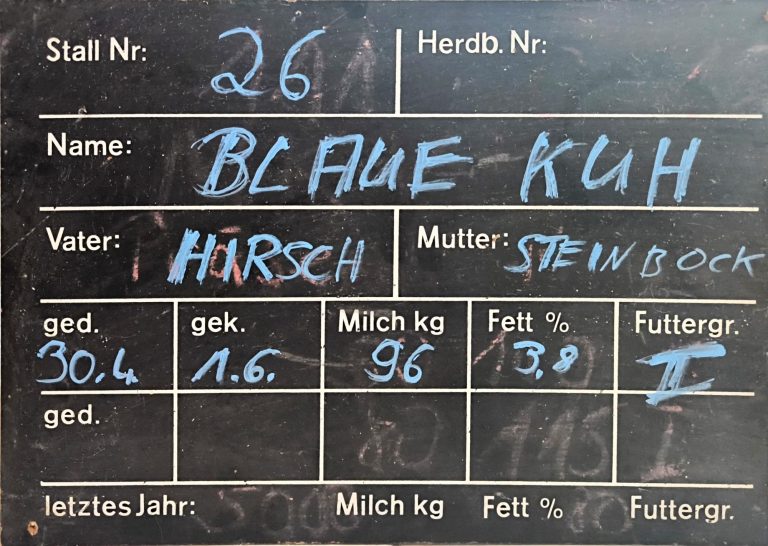 Stall Nr: 26 Herdb. Nr:
Name: BLAUE KUH
Vater: HIRSCH Mutter: STEINBOCK
ged. gek. Milch kg Fett % Futtergr.
30.4. 1.6. 96 3,8 II
ged.
letztes Jahr: Milch kg Fett % Futtergr.